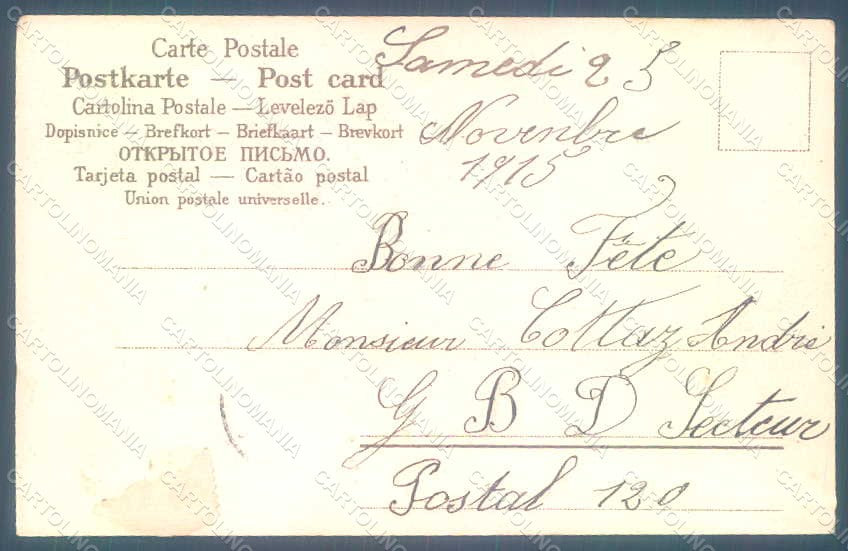 Carte Postale
Postkarte — Post card
Cartolina Postale — Levelező Lap
Dopisnice — Brefkort — Briefkaart — Brevkort
ОТКРЫТОЕ ПИСЬМО.
Tarjeta postal — Cartão postal
Union postale universelle.
Samedi 2 5
Novenbre
1915
Bonne Fête
Monsieur Cottaz André
G B D Secteur
Postal 120
CARTOLINOMANIA